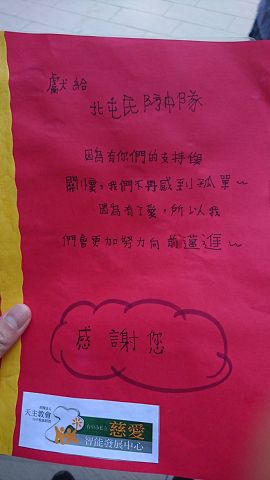 獻給
北屯民防中隊
因為有你們的支持與
關懷,我們不再感到孤單~
因為有了愛,所以我
們會更加努力向前邁進~
感謝您
財團法人
天主教會
台中市私立
慈愛
智能發展中心